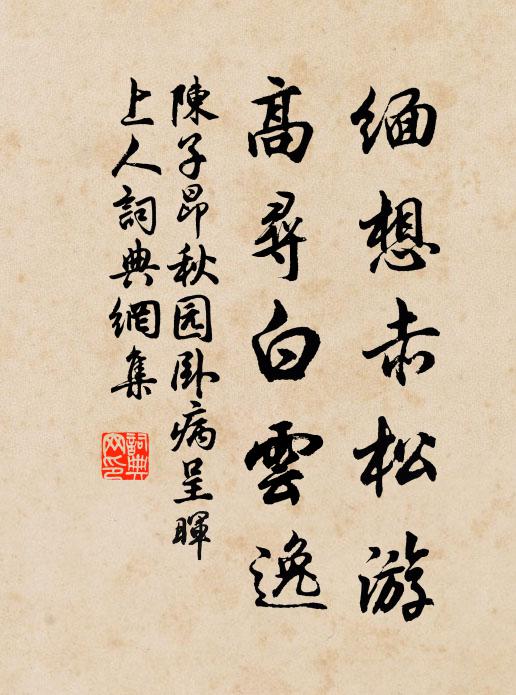 緬想赤松游
高尋白雲逸
陳子昂秋园卧病呈暉
上人詞典網集
詞典网印